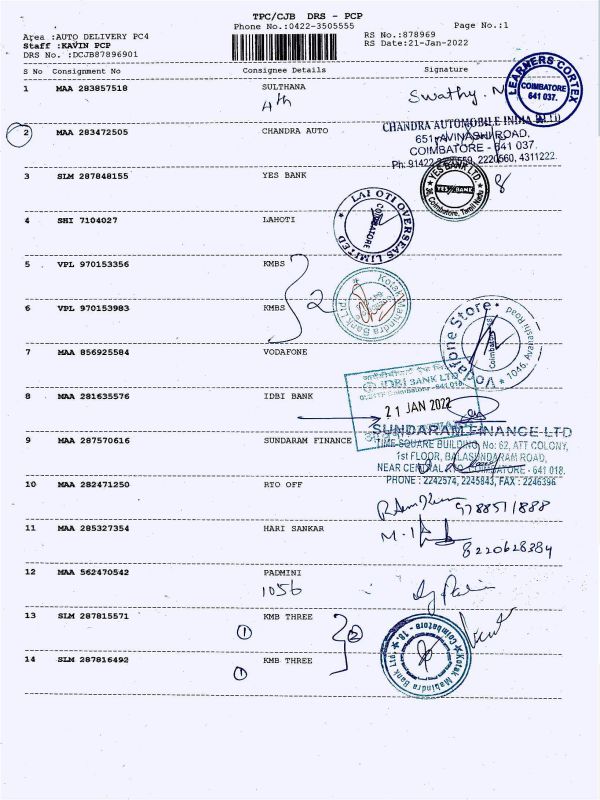 TPC/CJB DRS - PCP
Phone No.:0422-3505555
Page No.:1
Area :AUTO DELIVERY PC4
RS No.:878969
Staff :KAVIN PCP
RS Date:21-Jan-2022
DRS No. :DCJB87896901
S No Consignment No Consignee Details Signature
1 MAA 283857518 SULTHANA
4th
Swathy. N
LEARNERS CORTEX
COIMBATORE
641 037.
2 MAA 283472505 CHANDRA AUTO
CHANDRA AUTOMOBILE INDIA
651, AVINASHI ROAD,
COIMBATORE - 641 037.
2220560, 4311222.
3 SLM 287848155 YES BANK
YES BANK LTD
Coimbatore, Tamil Nadu
YES BANK
4 SHI 7104027 LAHOTI
LAHOTI OVERSEAS LIMITED
COIMBATORE
5 VPL 970153356 KMBS
2
Kotak Mahindra Bank Ltd
6 VPL 970153983 KMBS
7 MAA 856925584 VODAFONE
Vodafone Store
1046, Avinashi Road
Coimbatore
8 MAA 281635576 IDBI BANK
IDBI BANK LTD
21 JAN 2022
9 MAA 287570616 SUNDARAM FINANCE
SUNDARAM FINANCE LTD
TIME SQUARE BUILDING, No: 62, ATT COLONY,
1st FLOOR, BALASUNDARAM ROAD,
NEAR CENTRAL COIMBATORE - 641 018.
PHONE : 2242574, 2245843, FAX : 2246396
10 MAA 282471250 RTO OFF
9788511888
11 MAA 285327354 HARI SANKAR
8220628384
12 MAA 562470542 PADMINI
1056
13 SLM 287815571 KMB THREE
1
2
14 SLM 287816492 KMB THREE
1
Kotak Mahindra Bank Ltd.
Coimbatore - 18.